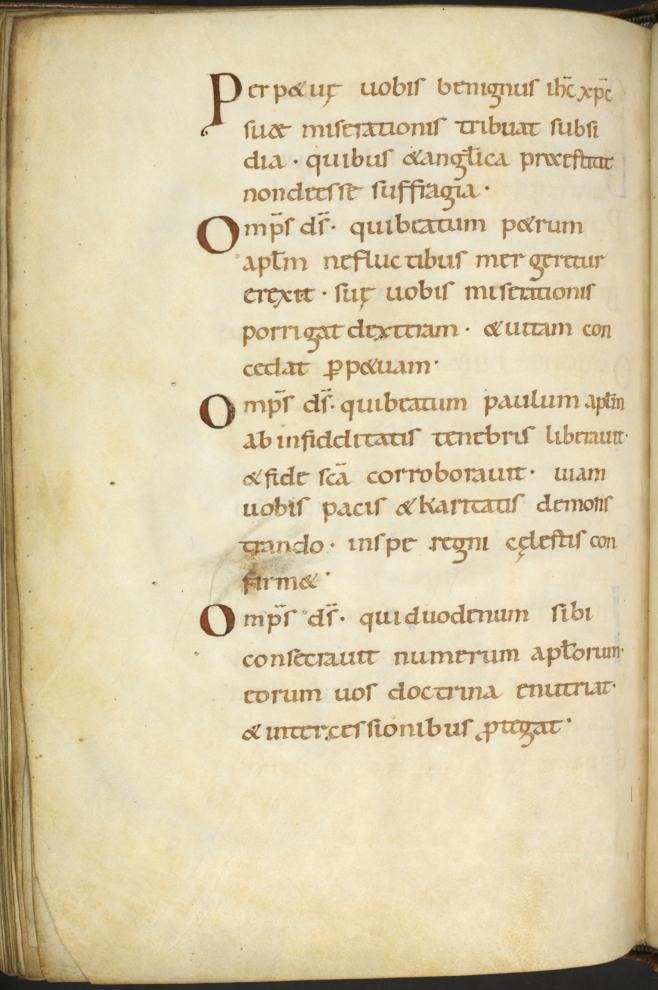 Perp&uę uobis benignus ih̄c xp̄c
suæ miserationis tribuat subsi
dia · quibus &angłica præestitit
nondeesse suffragia ·
Omp̄s ds̄· quibeatum p&rum
aptm̄ nefluctibus mergeretur
erexit · suę uobis miserationis
porrigat dexteram · &uitam con
cedat ꝑp&uam ·
Omp̄s ds̄· quibeatum paulum aptm̄
ab infidelitatis tenebris liberauit·
&fide scā corroborauit · uiam
uobis pacis &karitatis demons
trando · inspe regni cęlestis con
firm& ·
Omp̄s ds̄· quiduodenum sibi
consecrauit numerum apłorum·
eorum uos doctrina enutriat·
&intercessionibus ꝓtegat ·